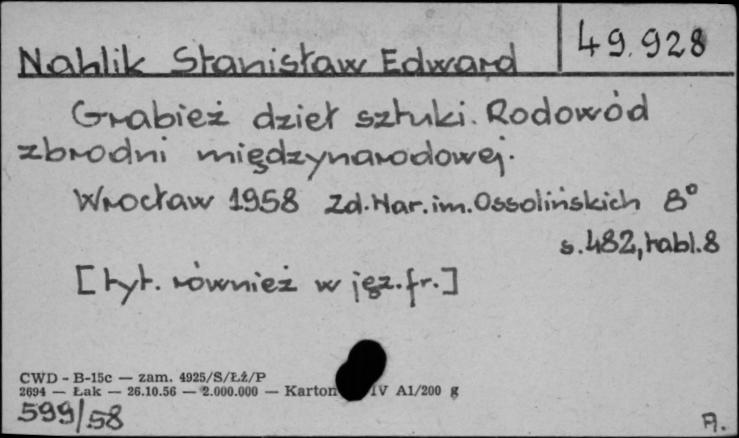 Nahlik Stanisław Edward
49.928
Grabież dzieł sztuki. Rodowód
zbrodni międzynarodowej.
Wrocław 1958 Zd.Nar.im.Ossolińskich 8°
s.482, tabl.8
[tyt. również w jęz.fr.]
CWD - B-15c — zam. 4925/S/Łź/P
2694 — Łak — 26.10.56 — 2.000.000 — Karton IV A1/200 g
599/58
A.